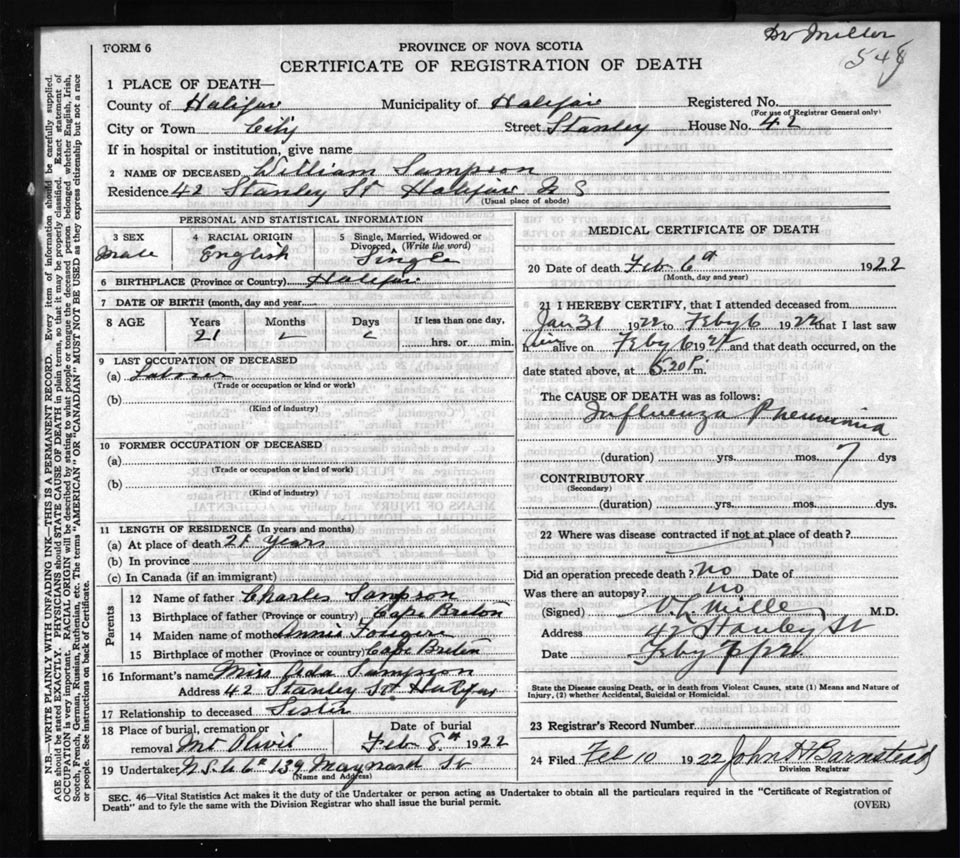 Dr Miller
548
FORM 6
PROVINCE OF NOVA SCOTIA
CERTIFICATE OF REGISTRATION OF DEATH
1 PLACE OF DEATH—
County of Halifax Municipality of Halifax Registered No.
(For use of Registrar General only)
City or Town City Street Stanley House No. 42
If in hospital or institution, give name
2 NAME OF DECEASED William Sampson
Residence 42 Stanley St Halifax N S
(Usual place of abode)
PERSONAL AND STATISTICAL INFORMATION
3 SEX Male
4 RACIAL ORIGIN English
5 Single, Married, Widowed or Divorced (Write the word) Single
6 BIRTHPLACE (Province or Country) Halifax
7 DATE OF BIRTH (month, day and year)
8 AGE Years 21 Months Days If less than one day, hrs. or min.
9 LAST OCCUPATION OF DECEASED
(a) Laborer
(Trade or occupation or kind or work)
(b)
(Kind of industry)
10 FORMER OCCUPATION OF DECEASED
(a)
(Trade or occupation or kind of work)
(b)
(Kind of industry)
11 LENGTH OF RESIDENCE (In years and months)
(a) At place of death 21 years
(b) In province
(c) In Canada (if an immigrant)
Parents
12 Name of father Charles Sampson
13 Birthplace of father (Province or country) Cape Breton
14 Maiden name of mother Annie
15 Birthplace of mother (Province or country) Cape Breton
16 Informant's name Miss Ada Sampson
Address 42 Stanley St Halifax
17 Relationship to deceased Sister
18 Place of burial, cremation or removal Mt Olivit
Date of burial Feb 8th 1922
19 Undertaker N.S.U Co 139 Maynard St
(Name and Address)
MEDICAL CERTIFICATE OF DEATH
20 Date of death Feb 6th 1922
(Month, day and year)
21 I HEREBY CERTIFY, that I attended deceased from
Jan 31 1922 to Feby 6 1922 that I last saw
him alive on Feby 6 1922 and that death occurred, on the
date stated above, at 5.20 P. m.
The CAUSE OF DEATH was as follows:
Influenza Pneumonia
(duration) yrs. mos. 7 dys
CONTRIBUTORY
(Secondary)
(duration) yrs. mos. dys.
22 Where was disease contracted if not at place of death?
Did an operation precede death? No Date of
Was there an autopsy? No
(Signed) V.L. Miller M.D.
Address 42 Stanley St
Date Feby 7/22
State the Disease causing Death, or in death from Violent Causes, state (1) Means and Nature of
Injury, (2) whether Accidental, Suicidal or Homicidal.
23 Registrar's Record Number
24 Filed Feb 10 1922 John H Barnstead
Division Registrar
SEC. 46—Vital Statistics Act makes it the duty of the Undertaker or person acting as Undertaker to obtain all the particulars required in the "Certificate of Registration of
Death" and to fyle the same with the Division Registrar who shall issue the burial permit.
(OVER)
N.B.—WRITE PLAINLY WITH UNFADING INK—THIS IS A PERMANENT RECORD. Every item of information should be carefully supplied.
AGE should be stated EXACTLY. PHYSICIANS should STATE CAUSE OF DEATH in plain terms, so that it may be properly classified. Exact statement of
OCCUPATION is very important. RACIAL ORIGIN will be described by stating to what people or tongue the deceased person belonged, whether English, Irish,
Scotch, French, German, Russian, Ruthenian, etc. The terms "AMERICAN" OR "CANADIAN" MUST NOT BE USED as they express citizenship but not a race
or people. See instructions on back of Certificate.